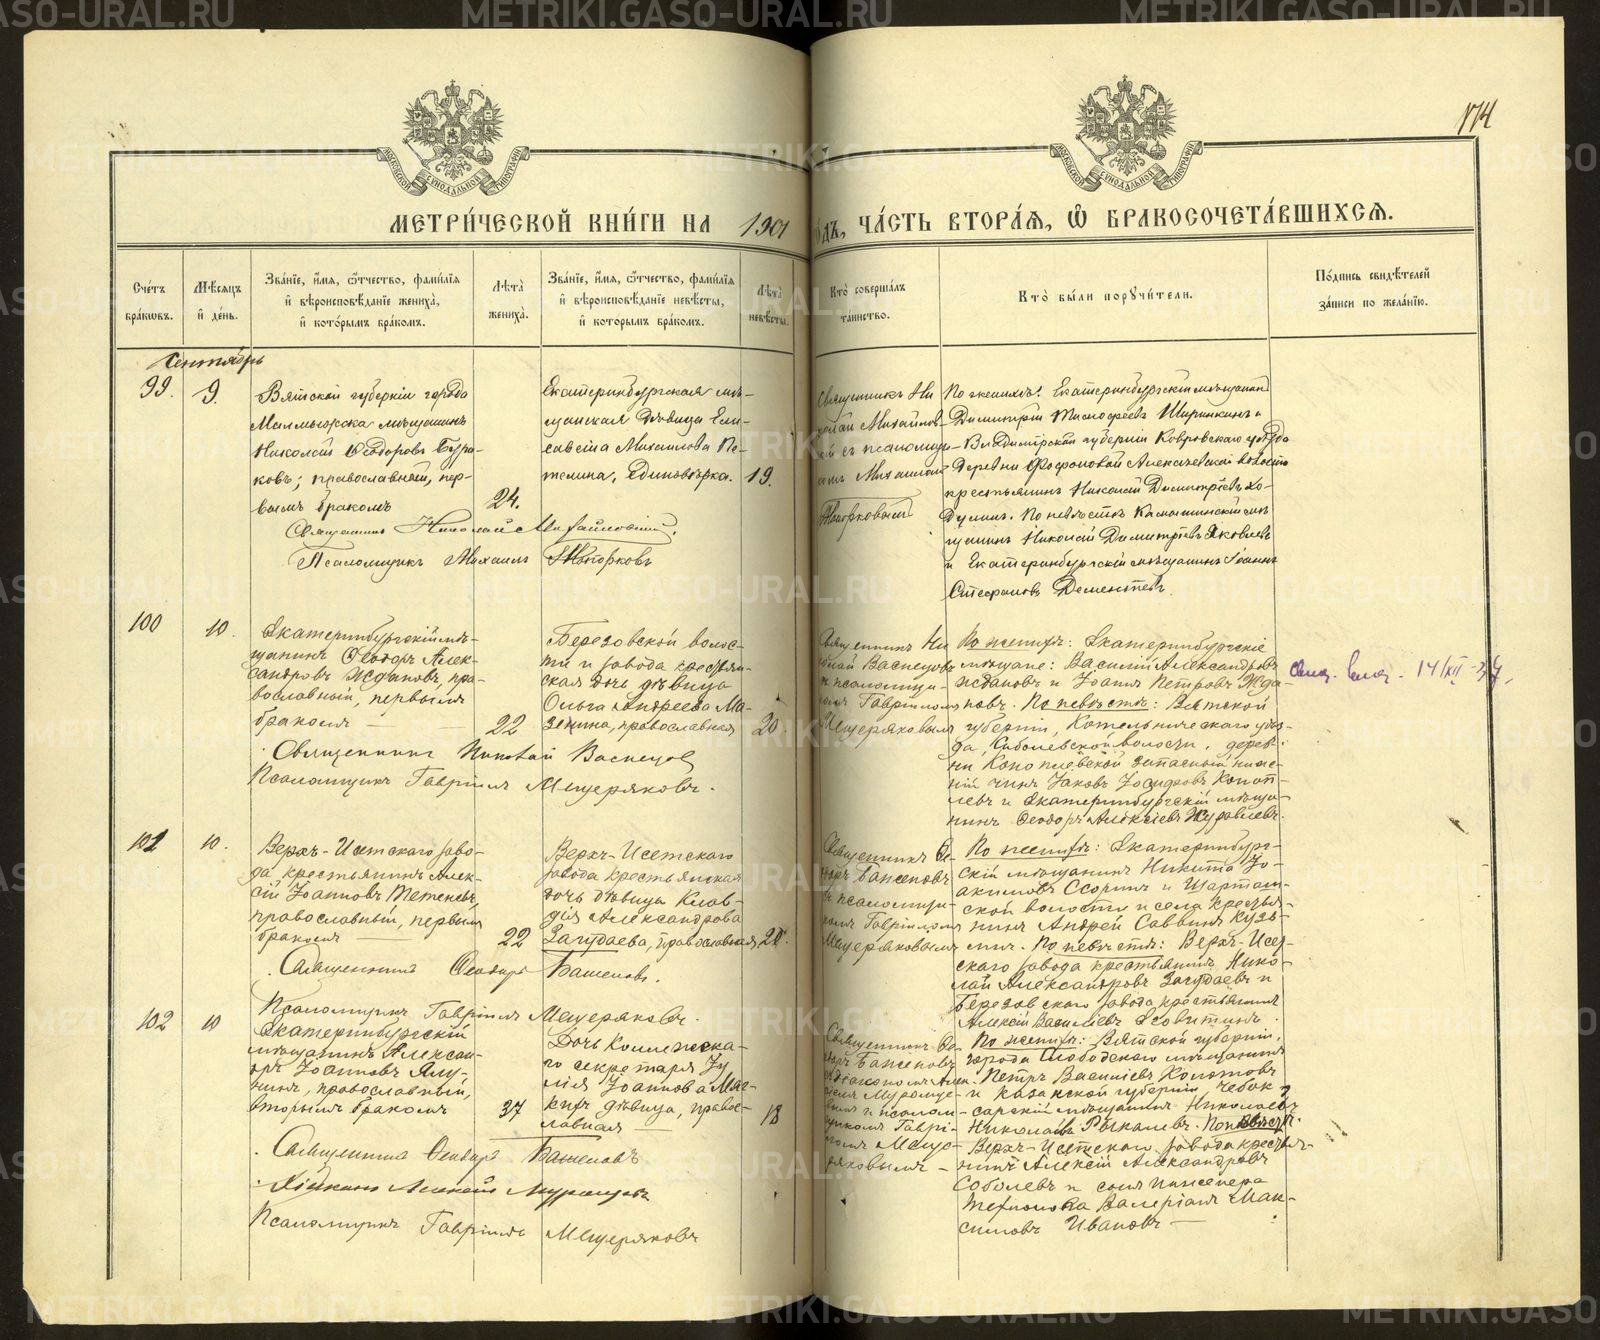 174
МЕТРИ́ЧЕСКОЙ КНИ́ГИ НА 1901 ГО́ДЪ, ЧА́СТЬ ВТОРА́Я, Ѿ БРАКОСОЧЕТА́ВШИХСЯ.
Сче́тъ бра́ковъ.
Мѣ́сяцъ и҆ де́нь.
Зва́нїе, и҆́мя, ѻ҆́тчество, фами́лїя и҆ вѣроисповѣ́данїе жениха̀, и҆ кото́рымъ бра́комъ.
Лѣ́та жениха̀.
Зва́нїе, и҆́мя, ѻ҆́тчество, фами́лїя и҆ вѣроисповѣ́данїе невѣ́сты, и҆ кото́рымъ бра́комъ.
Лѣ́та невѣ́сты.
Кто̀ соверша́лъ та́инство.
Кто̀ бы́ли поручи́тели.
По́дпись свидѣ́телей за́писи по жела́нїю.
Сентябрь
99.
9.
Вятской губерніи города
Малмыжска мѣщанинъ
Николай Ѳеодоровъ Бура-
ковъ; православный, пер-
вымъ бракомъ
24.
Екатеринбургская мѣ-
щанская дѣвица Ели-
савета Михаилова Пе-
телина, единовѣрка.
19.
Священникъ Ни
колай Михайлов-
ій съ псаломщи-
комъ Михаиломъ
Топорковымъ
По женихѣ: Екатеринбургскій мѣщанинъ
Димитрій Тимофеевъ Ширинкинъ и
Владимірской губерніи Ковровскаго уѣзда
деревни Алексѣевской волости
крестьянинъ Николай Димитріевъ Хо-
дулинъ. По невѣстѣ Камышинскій мѣ-
щанинъ Николай Димитріевъ Яковлевъ
и Екатеринбургскій мѣщанинъ Іоаннъ
Стефановъ Дементьевъ.
Священникъ Николай Михайловскій.
Псаломщикъ Михаилъ Топорковъ
100
10.
Екатеринбургскій мѣ-
щанинъ Ѳеодоръ Алек-
сандровъ Ждановъ, пра-
вославный, первымъ
бракомъ
22
Березовской волос-
ти и завода крестьян-
ская дочь дѣвица
Ольга Андреева Ма-
зенина, православная
20.
Священникъ Ни
колай Васнецовъ
съ псаломщи-
комъ Гавріиломъ
Мещеряковымъ
По женихѣ: Екатеринбургскіе
мѣщане: Василій Александровъ
Ждановъ и Іоаннъ Петровъ Жда-
новъ. По невѣстѣ: Вятской
губерніи, Котельническаго уѣз-
да, Соболевской волости, дерев-
ни Коноплевской запасный ниж-
ній чинъ Іаковъ Конoп-
левъ и Екатеринбургскій мѣща-
нинъ Ѳеодоръ Алексѣевъ Журавлевъ.
14/XII-
Священникъ Николай Васнецовъ
Псаломщикъ Гавріилъ Мещеряковъ.
101
10.
Верхъ-Исетскаго заво-
да крестьянинъ Алек-
сій Іоанновъ Тетеневъ,
православный, первымъ
бракомъ
22
Верхъ-Исетскаго
завода крестьянская
дочь дѣвица Клав-
дія Александрова
Загудаева, православная,
20.
Священникъ Ѳе-
одоръ Баженовъ
съ псаломщи-
комъ Гавріиломъ
Мещеряковымъ
По женихѣ: Екатеринбург-
скій мѣщанинъ Никита Іо-
акимовъ Ссоринъ и Шарташ-
ской волости и села крестья-
нинъ Андрей Саввинъ Кузь-
минъ. По невѣстѣ: Верхъ-Исет-
скаго завода крестьянинъ Нико-
лай Александровъ Загудаевъ и
Березовскаго завода крестьянинъ
Алексій Василіевъ
Священникъ Ѳеодоръ Баженовъ.
Псаломщикъ Гавріилъ Мещеряковъ.
102
10
Екатеринбургскій
мѣщанинъ Алексан-
дръ Іоанновъ Ялу-
нинъ, православный,
вторымъ бракомъ
37
Дочь Коллежска-
го секретаря Iу
лія Іоаннова Маг-
кихъ дѣвица, право-
славная
18
Священникъ Ѳе-
одоръ Баженовъ
съ діакономъ Алек-
сіемъ Муромце-
вымъ и псалом-
щикомъ Гаврі-
иломъ Меще-
ряковымъ
По женихѣ: Вятской губерніи,
города Слободскаго мѣщанинъ
Петръ Василіевъ Колотовъ
и Казанской губерніи, Чебок
сарскій мѣщанинъ Николай
Николаевъ Рычкалевъ. По невѣст.
Верхъ-Исетскаго завода крестья-
нинъ Алексій Александровъ
Соболевъ и сынъ инженера
технолога Валеріанъ Мак-
симовъ Ивановъ
Священникъ Ѳеодоръ Баженовъ
Діаконъ Алексій Муромцевъ
Псаломщикъ Гавріилъ Мещеряковъ
METRIKI.GASO-URAL.RU